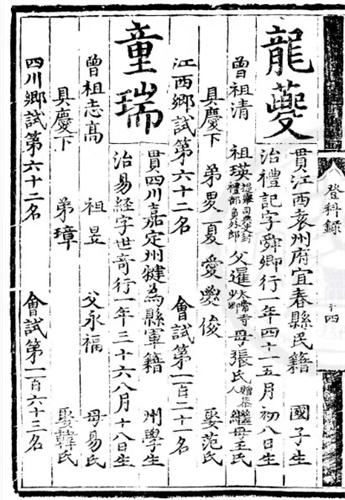 登科錄
龍夔
貫江西袁州府宜春縣民籍 國子生
治禮記字舜卿行一年四十一五月初八日生
曾祖清 祖瑛 父暹 母張氏 繼母王氏
具慶下 弟 夏 愛 俊 娶范氏
江西鄉試第六十二名 會試第一百二十一名
童瑞
貫四川嘉定州犍為縣軍籍 州學生
治易經字世奇行一年三十六八月十八日生
曾祖志高 祖昱 父永福 母易氏
具慶下 弟璋 娶韓氏
四川鄉試第六十二名 會試第一百六十三名